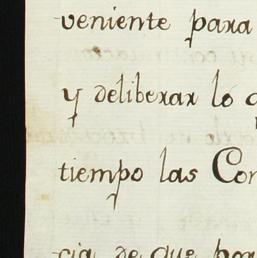 veniente para
y deliberar lo
tiempo las Con
cia de que